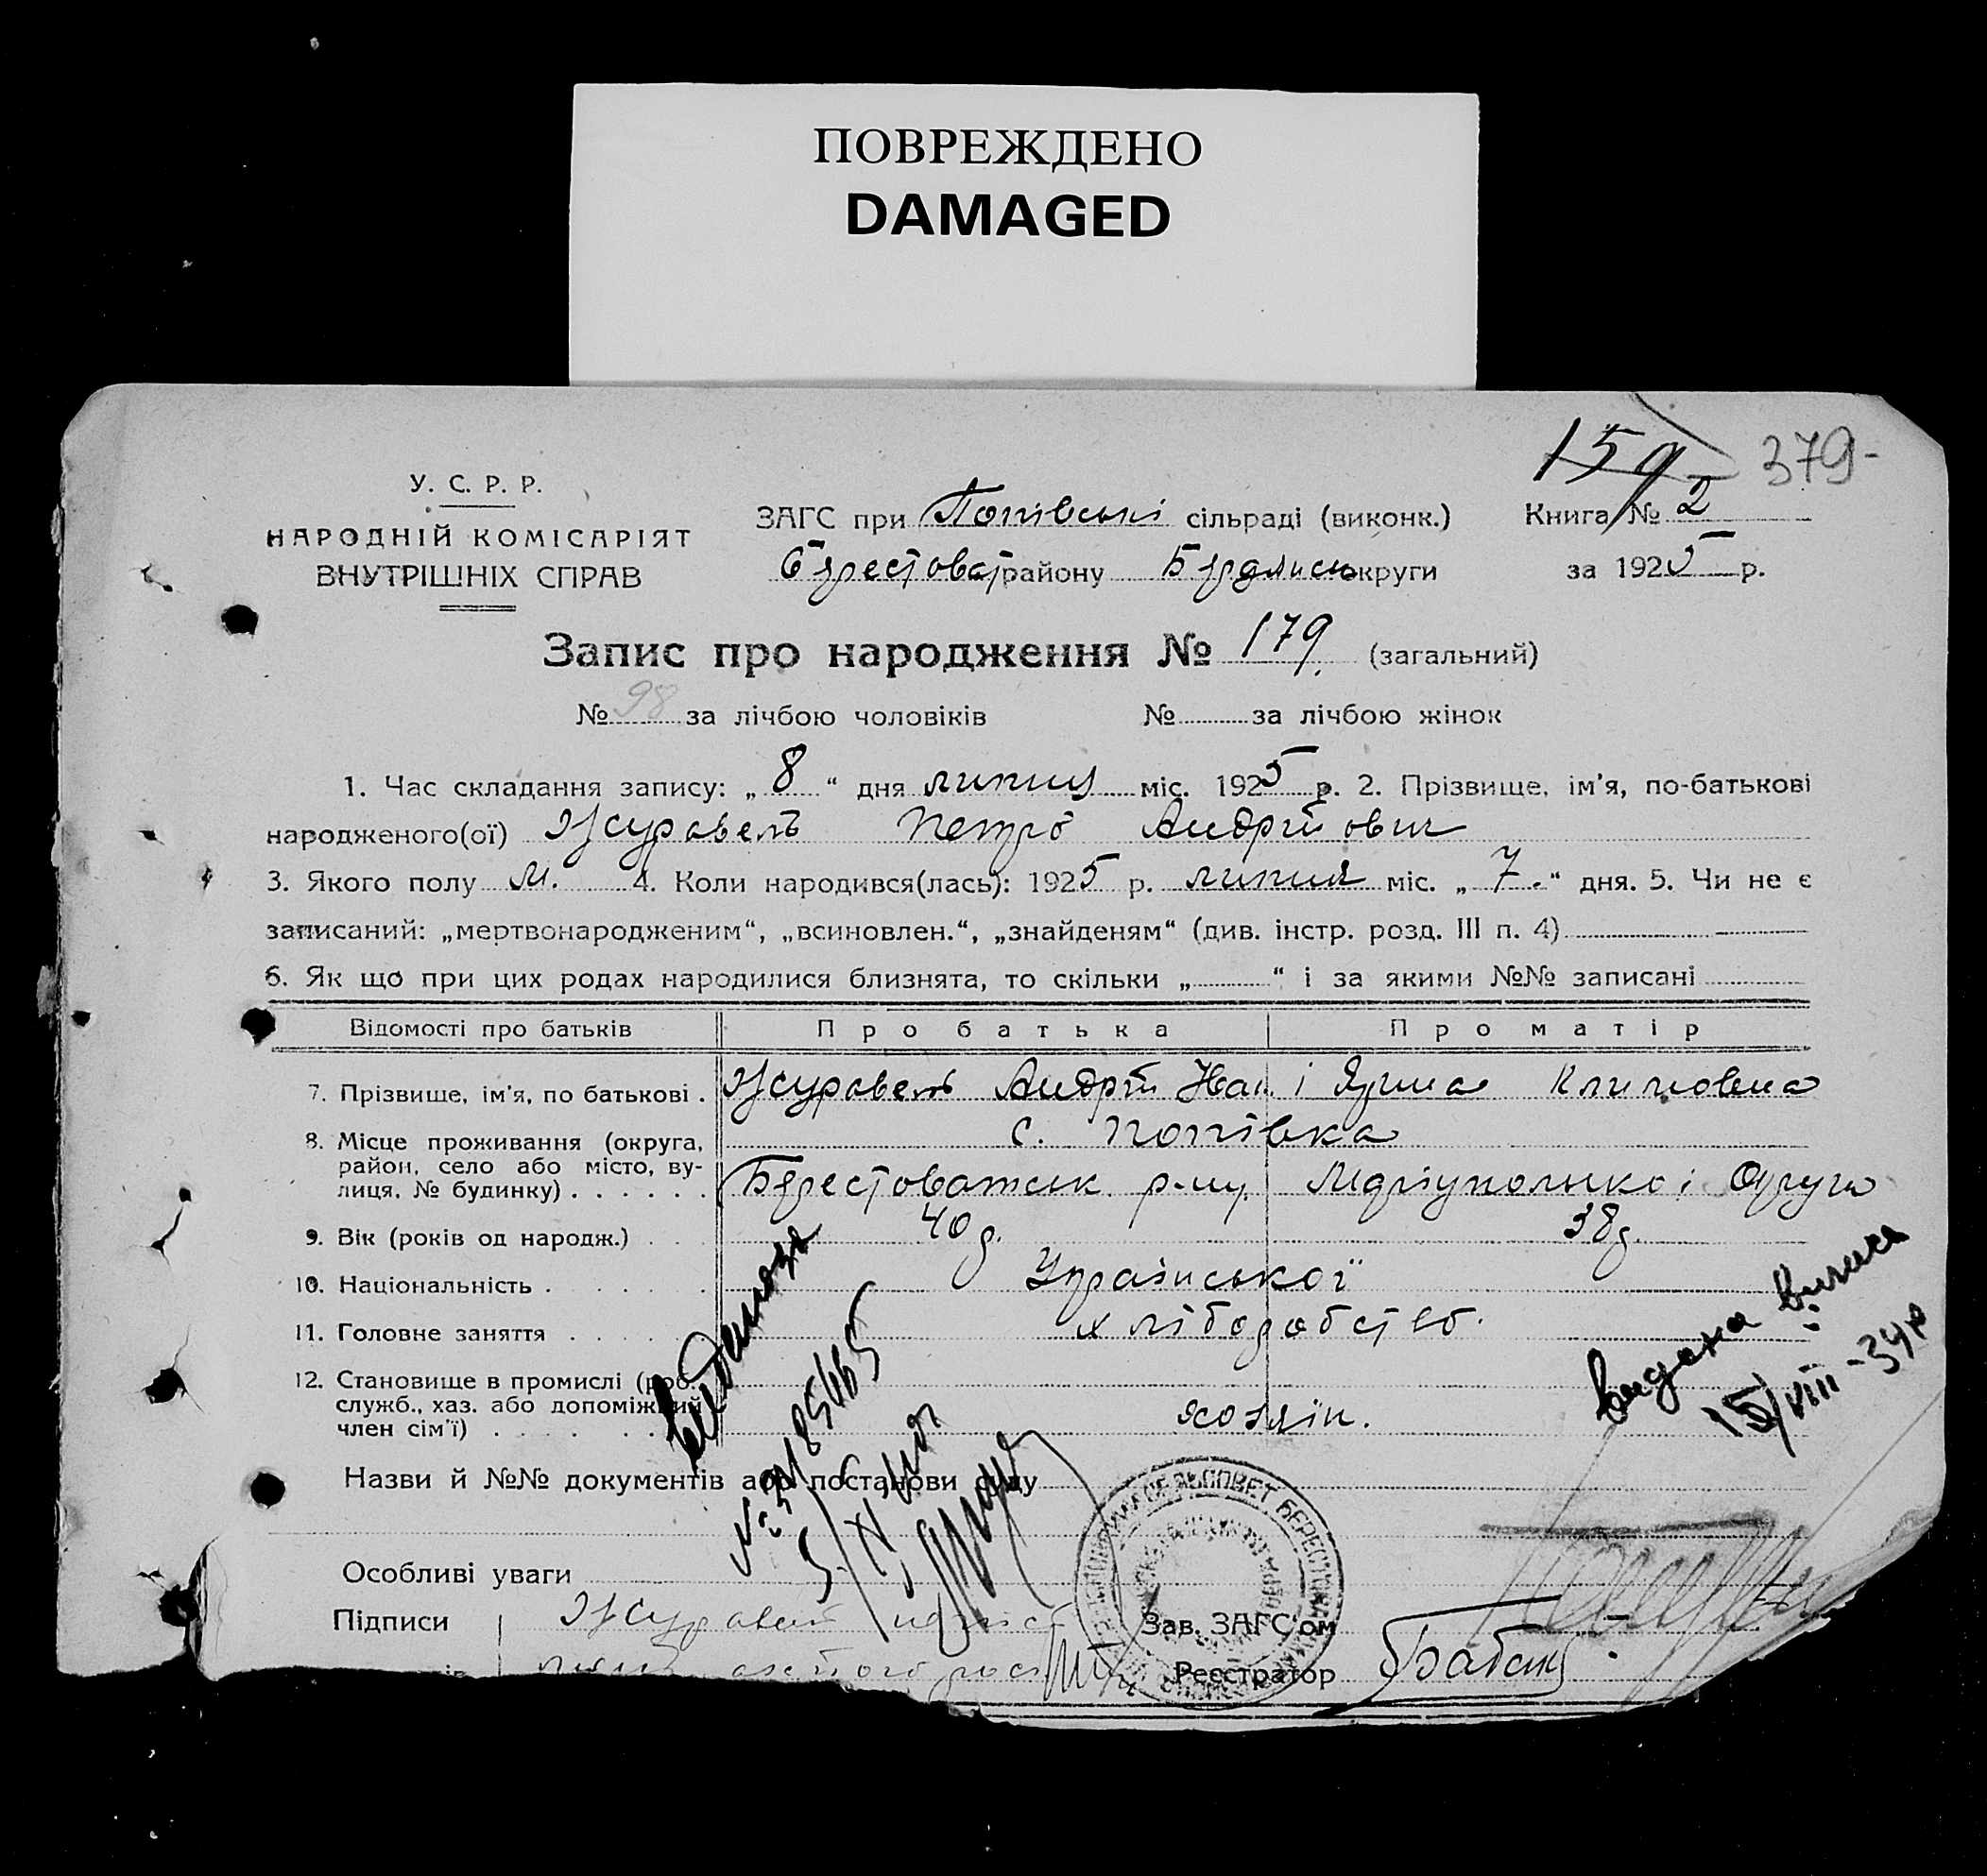 ПОВРЕЖДЕНО
DAMAGED
159 379-
У. С. Р. Р.
НАРОДНІЙ КОМІСАРІЯТ
ВНУТРІШНІХ СПРАВ
ЗАГС при Попівські сільраді (виконк.) Книга № 2
Берестоват району Бердянсь округи за 1925 р.
Запис про народження № 179. (загальний)
№ 98 за лічбою чоловіків № за лічбою жінок
1. Час складання запису: „ 8 “ дня липня міс. 1925 р. 2. Прізвище, ім'я, по-батькові
народженого(ої) Журавель Петро Андрійович
3. Якого полу м. 4. Коли народився(лась): 1925 р. липня міс. „ 7. “ дня. 5. Чи не є
записаний: „мертвонародженим“, „всиновлен.“, „знайденям“ (див. інстр. розд. III п. 4)
6. Як що при цих родах народилися близнята, то скільки „ “ і за якими №№ записані
Відомості про батьків Про батька Про матір
7. Прізвище, ім'я, по батькові . Журавель Андрій Іван. і Ярина Климовна
8. Місце проживання (округа, с. Попівка
район, село або місто, ву-
лиця, № будинку) . . . . . . Берестоватськ р-ну Маріупольської Округи
9. Вік (років од народж.) . . . 40 р. 38 р.
10. Національність . . . . . . Української
11. Головне заняття . . . . . хліборобство.
12. Становище в промислі (роб.
служб., хаз. або допоміжний
член сім'ї) . . . . . . хозяїн.
видана
15/VIII-34р
Назви й №№ документів або постанови суду
Особливі уваги
Підписи Журавель Зав. ЗАГС'ом
Реєстратор